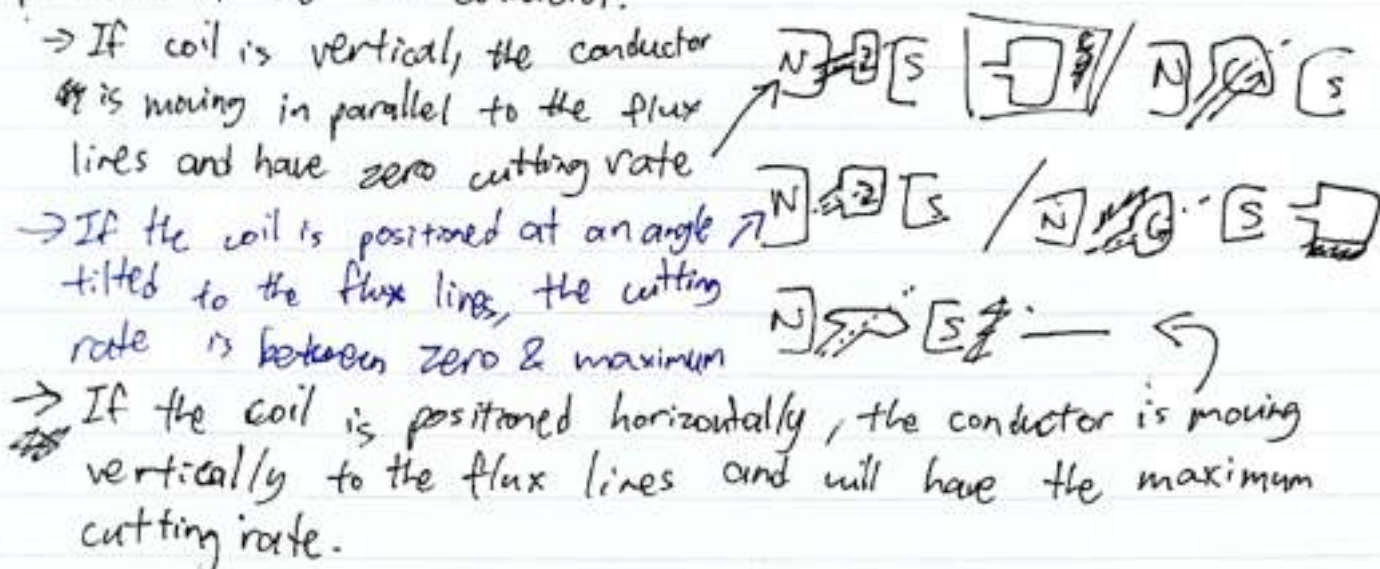 → If coil is vertical, the conductor
is moving in parallel to the flux
lines and have zero cutting rate
→ If the coil is positioned at an angle
tilted to the flux lines, the cutting
rate is between zero & maximum
→ If the coil is positioned horizontally, the conductor is moving
vertically to the flux lines and will have the maximum
cutting rate.
N 2 S N S
N 2 S / N S
N S